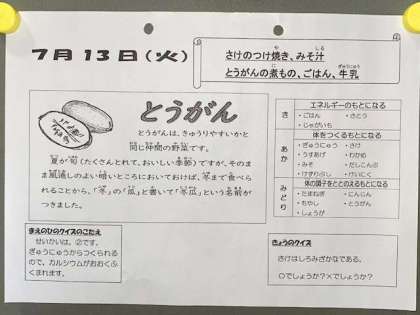 7月13日(火)
さけのつけ焼き、みそ汁
とうがんの煮もの、ごはん、牛乳
とうがん
とうがんは、きゅうりやすいかと
同じ仲間の野菜です。
夏が旬(たくさんとれて、おいしい季節)ですが、そのま
ま風通しのよい暗いところにおいておけば、冬まで食べ
られることから、「冬」の「瓜」と書いて「冬瓜」という名前が
つきました。
き
エネルギーのもとになる
・ごはん ・さとう
・じゃがいも
あか
体をつくるもとになる
・ぎゅうにゅう ・さけ
・うすあげ ・わかめ
・みそ ・だしこんぶ
・けずりぶし ・けいにく
みどり
体の調子をととのえるもとになる
・たまねぎ ・にんじん
・もやし ・とうがん
・しょうが
まえのひのクイズのこたえ
せいかいは、②です。
ぎゅうにゅうからつくられる
ので、カルシウムがおおくふ
くまれます。
きょうのクイズ
さけはしろみざかなである。
○でしょうか?×でしょうか?